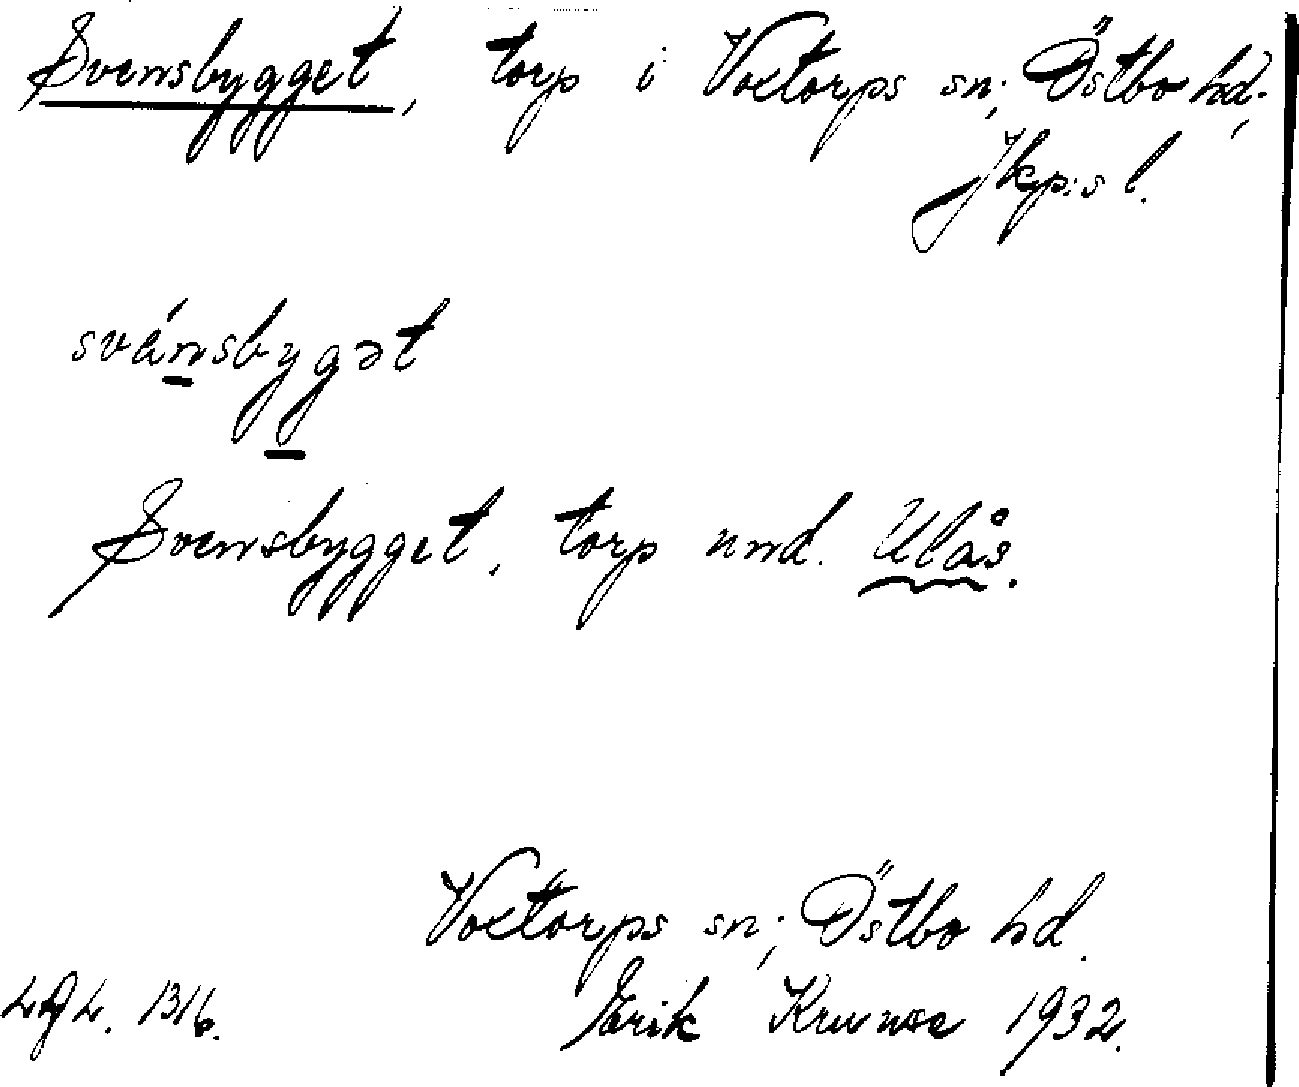 Svensbygget, torp i Voxtorps sn; Östbo hd;
Jkp:s l.
svánsbygət
Svensbygget, torp und. Ulås.
Voxtorps sn; Östbo hd.
Erik
1932.